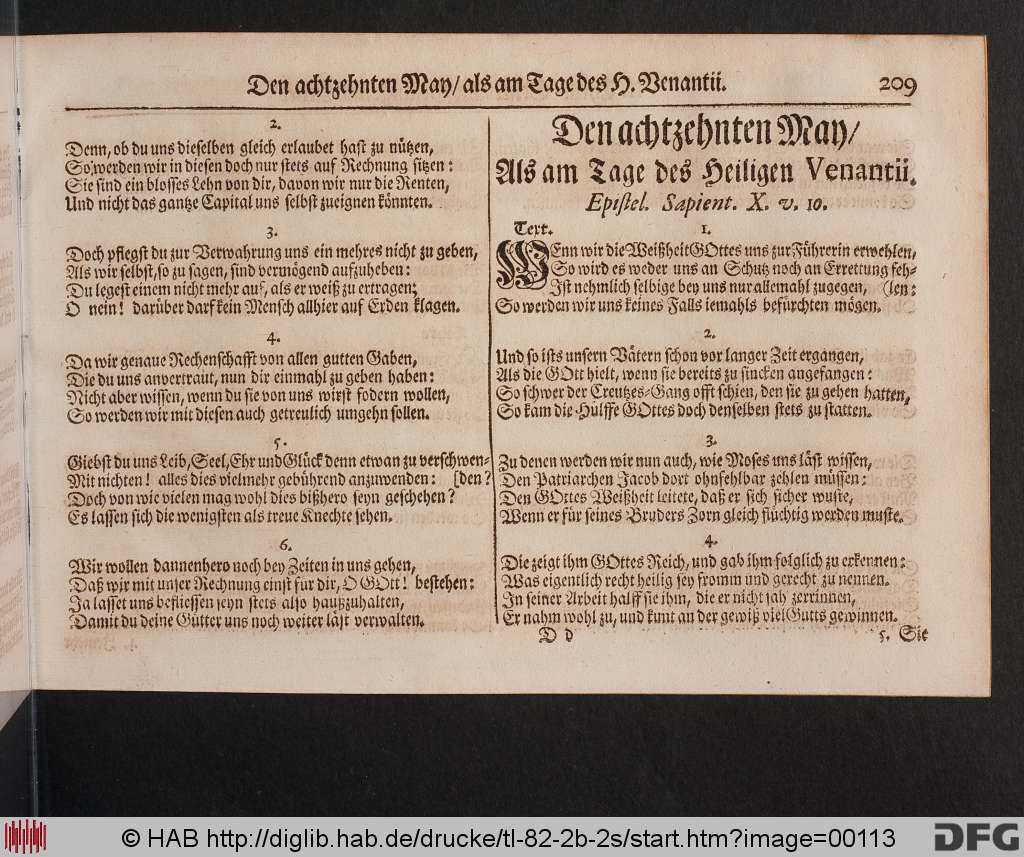 Den achtzehnten May/ als am Tage des H. Venantii. 209
2.
Denn, ob du uns dieselben gleich erlaubet hast zu nützen,
So werden wir in diesen doch nur stets auf Rechnung sitzen:
Sie sind ein blosses Lehn von dir, davon wir nur die Renten,
Und nicht das gantze Capital uns selbst zueignen könnten.
3.
Doch pflegst du zur Verwahrung uns ein mehres nicht zu geben,
Als wir selbst, so zu sagen, sind vermögend aufzuheben:
Du legest einem nicht mehr auf, als er weiß zu ertragen;
O nein! darüber darf kein Mensch allhier auf Erden klagen.
4.
Da wir genaue Rechenschafft von allen gutten Gaben,
Die du uns anvertraut, nun dir einmahl zu geben haben:
Nicht aber wissen, wenn du sie von uns wirst fodern wollen,
So werden wir mit diesen auch getreulich umgehn sollen.
5.
Giebst du uns Leib, Seel, Ehr und Glück denn etwan zu verschwen-
Mit nichten! alles dies vielmehr gebührend anzuwenden: [den?
Doch von wie vielen mag wohl dies bißhero seyn geschehen?
Es lassen sich die wenigsten als treue Knechte sehen.
6.
Wir wollen dannenhero noch bey Zeiten in uns gehen,
Daß wir mit unser Rechnung einst für dir, O GOtt! bestehen:
Ja lasset uns befliessen seyn stets also haußzuhalten,
Damit du deine Gütter uns noch weiter läst verwalten.
Den achtzehnten May/
Als am Tage des Heiligen Venantii.
Epistel. Sapient. X. v. 10.
Text. 1.
WEnn wir die Weißheit GOttes uns zur Führerin erwehlen,
So wird es weder uns an Schutz noch an Errettung feh-
Ist nehmlich selbige bey uns nur allemahl zugegen, (len:
So werden wir uns keines Falls iemahls befürchten mögen.
2.
Und so ists unsern Vätern schon vor langer Zeit ergangen,
Als die GOtt hielt, wenn sie bereits zu sincken angefangen:
So schwer der Creutzes-Gang offt schien, den sie zu gehen hatten,
So kam die Hülffe GOttes doch denselben stets zu statten.
3.
Zu denen werden wir nun auch, wie Moses uns läst wissen,
Den Patriarchen Jacob dort ohnfehlbar zehlen müssen:
Den GOttes Weißheit leitete, daß er sich sicher wuste,
Wenn er für seines Bruders Zorn gleich flüchtig werden muste.
4.
Die zeigt ihm GOttes Reich, und gab ihm folglich zu erkennen:
Was eigentlich recht heilig sey fromm und gerecht zu nennen.
In seiner Arbeit halff sie ihm, die er nicht sah zerrinnen,
Er nahm wohl zu, und kunt an der gewiß viel Gutts gewinnen.
D d 5. Sie
© HAB http://diglib.hab.de/drucke/tl-82-2b-2s/start.htm?image=00113
DFG